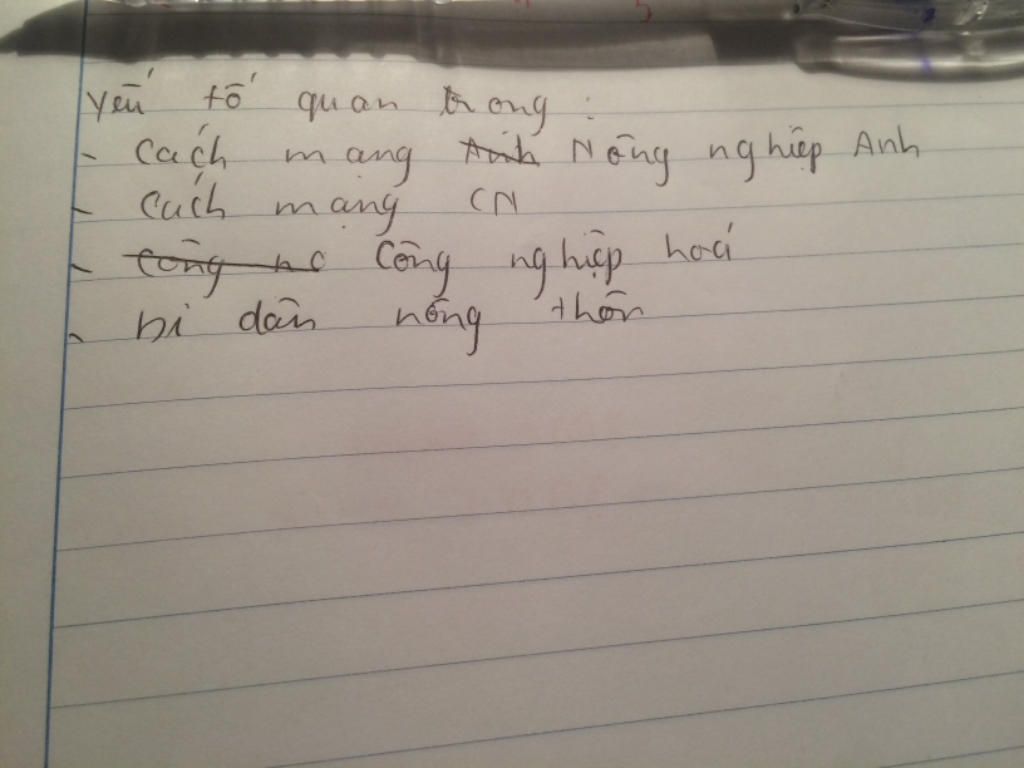 Yếu tố quan trong:
- Cách mang Anh Nông nghiệp Anh
- Cách mạng CN
- Công ng Công nghiệp hoá
- Di dân nông thôn